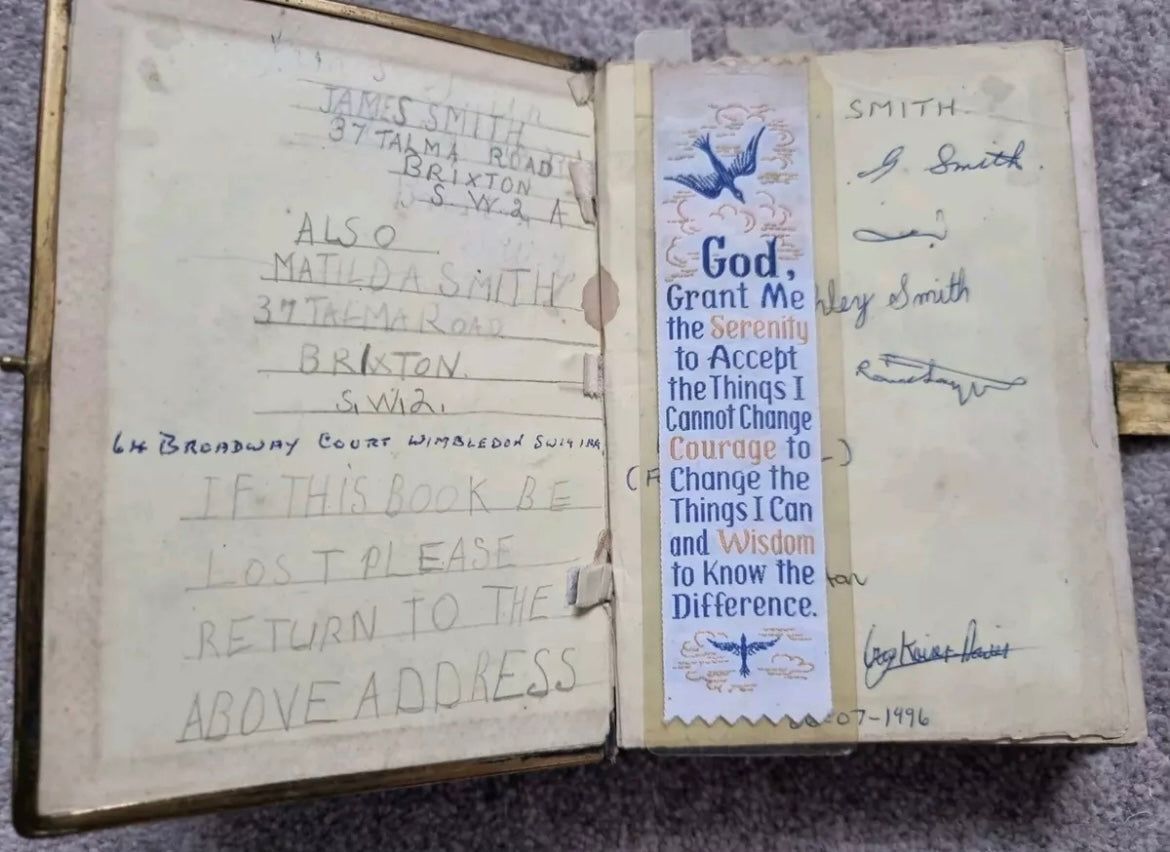 JAMES SMITH
37 TALMA ROAD
BRIXTON
S.W.2 A
ALSO
MATILDA SMITH
37 TALMA ROAD
BRIXTON.
S.W.2.
64 BROADWAY COURT WIMBLEDON SW19 1RG
IF THIS BOOK BE
LOST PLEASE
RETURN TO THE
ABOVE ADDRESS
God,
Grant Me
the Serenity
to Accept
the Things I
Cannot Change
Courage to
Change the
Things I Can
and Wisdom
to Know the
Difference.
SMITH.
G. Smith.
hley Smith
07-1996